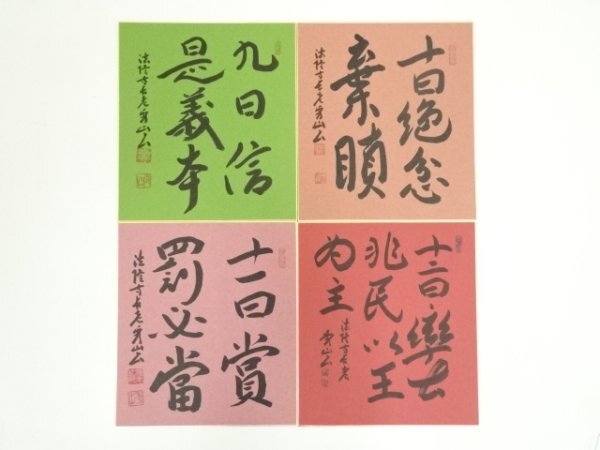 九曰信
是義本
法隆寺長老秀山
十曰絶忿
棄瞋
法隆寺長老秀山
十一曰賞
罰必當
法隆寺長老秀山
十二曰率土
兆民以王
為主
法隆寺長老
秀山